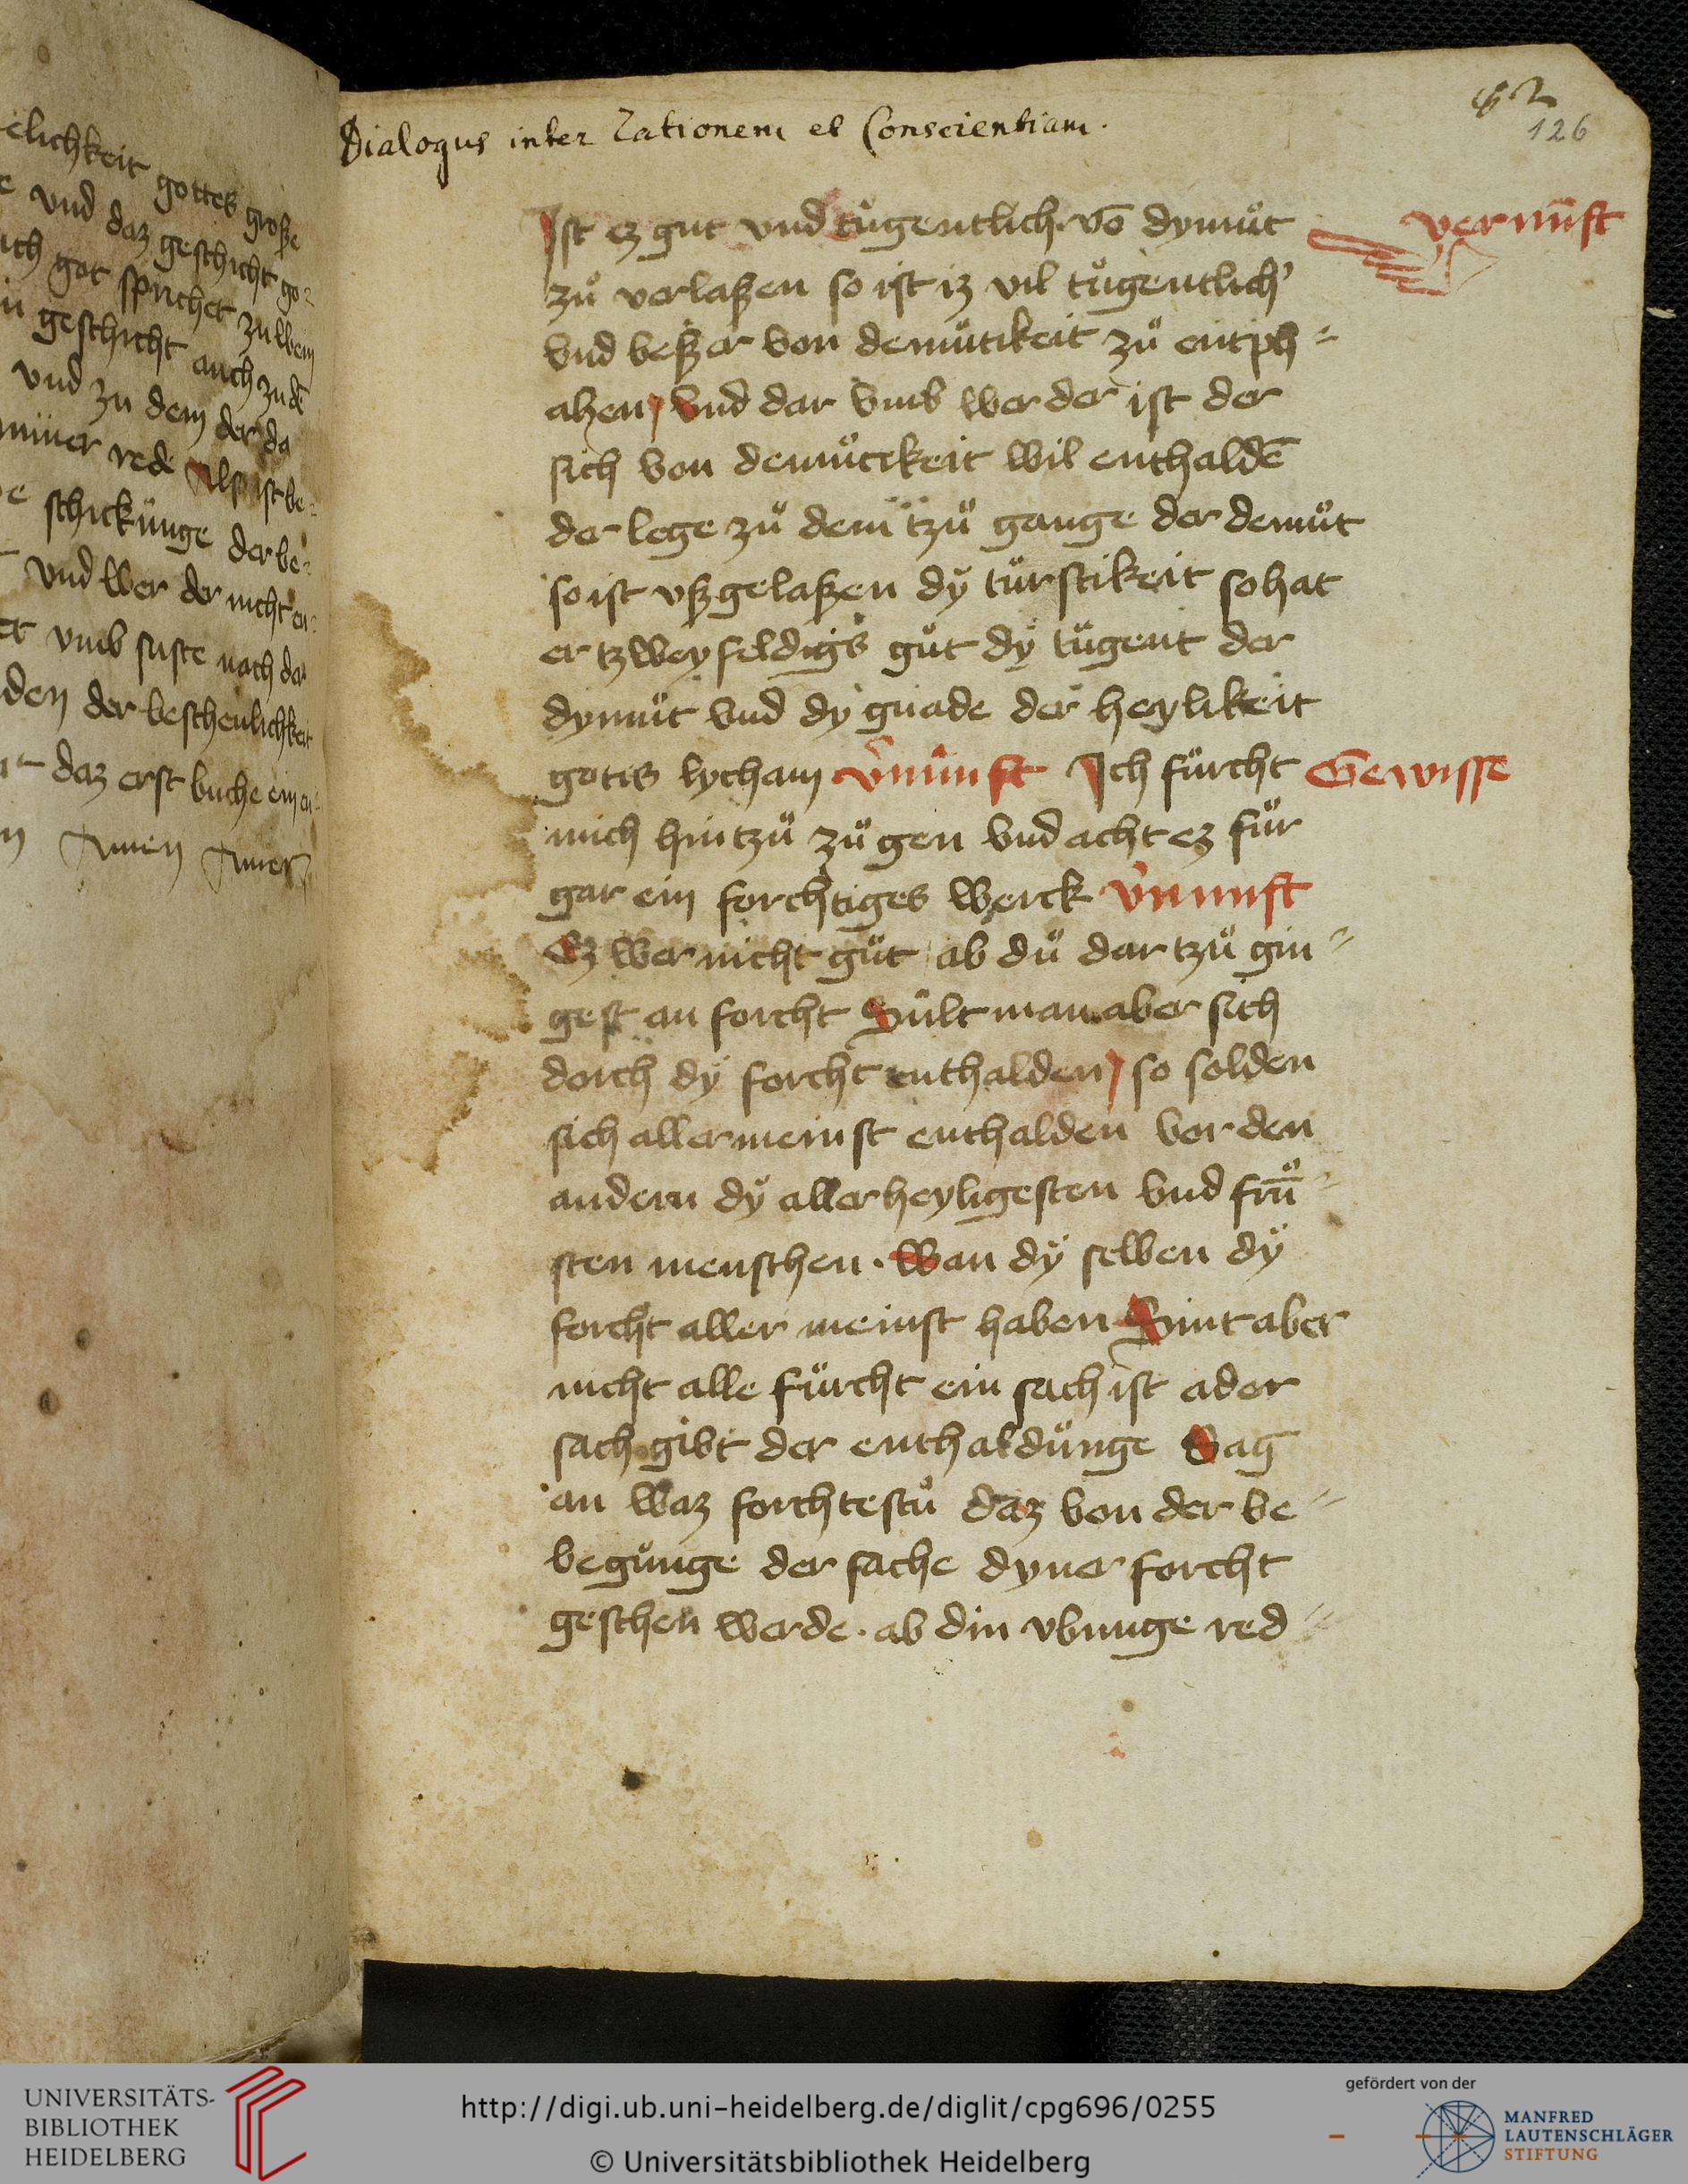 elichkeit gottes große
e vnd daz geschicht go=
ich got sprichet zu wem
in geschicht auch zu dē
vnd zu dem der da
rede Also ist be=
e schickünge der be=
vnd wer der nicht en=
vmb suste nach da
den der bescheulichkeit
daz erst buche ein
Amen Amen
Dialogus inter Rationem et Conscientiam.
126
Ist ez gut vnd tůgentlich vō dymůt
vernũft
zů verlaßen so ist iz vil tůgentlich'
vnd beßer von demůtikeit zů entph=
ahen vnd dar vmb wer der ist der
sich von demůtikeit wil enthaldē
der lege zů dem tzů gange der demůt
so ist vßgelaßen dÿ tůrstikeit so hat
er tzweyfeldigs gůt dÿ tůgent der
dymůt vnd dÿ gnade der heylikeit
gotis lycham v'nũnft Ich fůrcht
Gewisse
mich hin tzů zů gen vnd acht ez fůr
gar ein forchtiges werck v'nunft
Ez wer nicht gůt ab dů dar tzů gin=
gest an forcht Sůlt man aber sich
dorch dÿ forcht enthalden so solden
sich allermeinst enthalden vor den
andern dÿ allerheyligesten vnd frů̄=
sten menschen. Wan dÿ selben dÿ
forcht aller meinst haben Sint aber
nicht alle fůrcht ein sach ist ader
sach gibt der enthaldůnge Sag
an waz forchtestů daz von der be=
begůnge der sache dyner forcht
geschen werde. ab din vbunge red=
UNIVERSITÄTS-
BIBLIOTHEK
HEIDELBERG
http://digi.ub.uni-heidelberg.de/diglit/cpg696/0255
© Universitätsbibliothek Heidelberg
gefördert von der
MANFRED
LAUTENSCHLÄGER
STIFTUNG